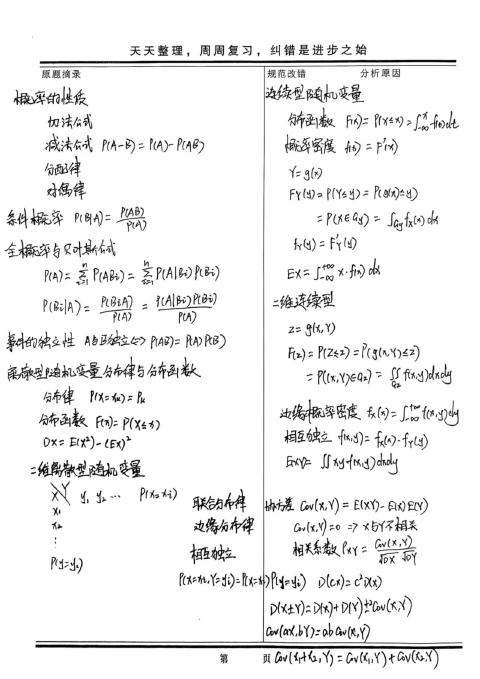 天天整理，周周复习，纠错是进步之始
原题摘录
概率的性质
加法公式
减法公式 P(A-B)=P(A)-P(AB)
分配律
对偶律
条件概率 P(B|A)=P(AB)/P(A)
全概率与贝叶斯公式
P(A)=∑_{i=1}^{n}P(ABi)=∑_{i=1}^{n}P(A|Bi)P(Bi)
P(Bi|A)=P(BiA)/P(A)=P(A|Bi)P(Bi)/P(A)
事件的独立性 A与B独立⇔P(AB)=P(A)P(B)
离散型随机变量分布律与分布函数
分布律 P(X=xk)=Pk
分布函数 F(x)=P(X≤x)
DX=E(X²)-(EX)²
二维离散型随机变量
X Y y1 y2 … P(X=xi)
x1
x2
⋮
P(Y=yi)
联合分布律
边缘分布律
相互独立
P(X=xi,Y=yi)=P(X=xi)P(Y=yi)
规范改错 分析原因
连续型随机变量
分布函数 F(x)=P(X≤x)=∫_{-∞}^{x}f(t)dt
概率密度 f(x)=F'(x)
Y=g(x)
FY(y)=P(Y≤y)=P(g(x)≤y)
=P(X∈Gy)=∫_{Gy}fx(x)dx
fY(y)=F'Y(y)
EX=∫_{-∞}^{+∞}x·f(x)dx
二维连续型
Z=g(X,Y)
F(z)=P(Z≤z)=P(g(X,Y)≤z)
=P((X,Y)∈Gz)=∬_{Gz}f(x,y)dxdy
边缘概率密度 fx(x)=∫_{-∞}^{+∞}f(x,y)dy
相互独立 f(x,y)=fx(x)·fY(y)
EXY=∬xyf(x,y)dxdy
协方差 Cov(X,Y)=E(XY)-E(X)E(Y)
Cov(X,Y)=0 ⇒ X与Y不相关
相关系数 ρXY=Cov(X,Y)/(√DX √DY)
D(cX)=c²D(X)
D(X±Y)=D(X)+D(Y)±2Cov(X,Y)
Cov(aX,bY)=abCov(X,Y)
Cov(X1+X2,Y)=Cov(X1,Y)+Cov(X2,Y)
第 页